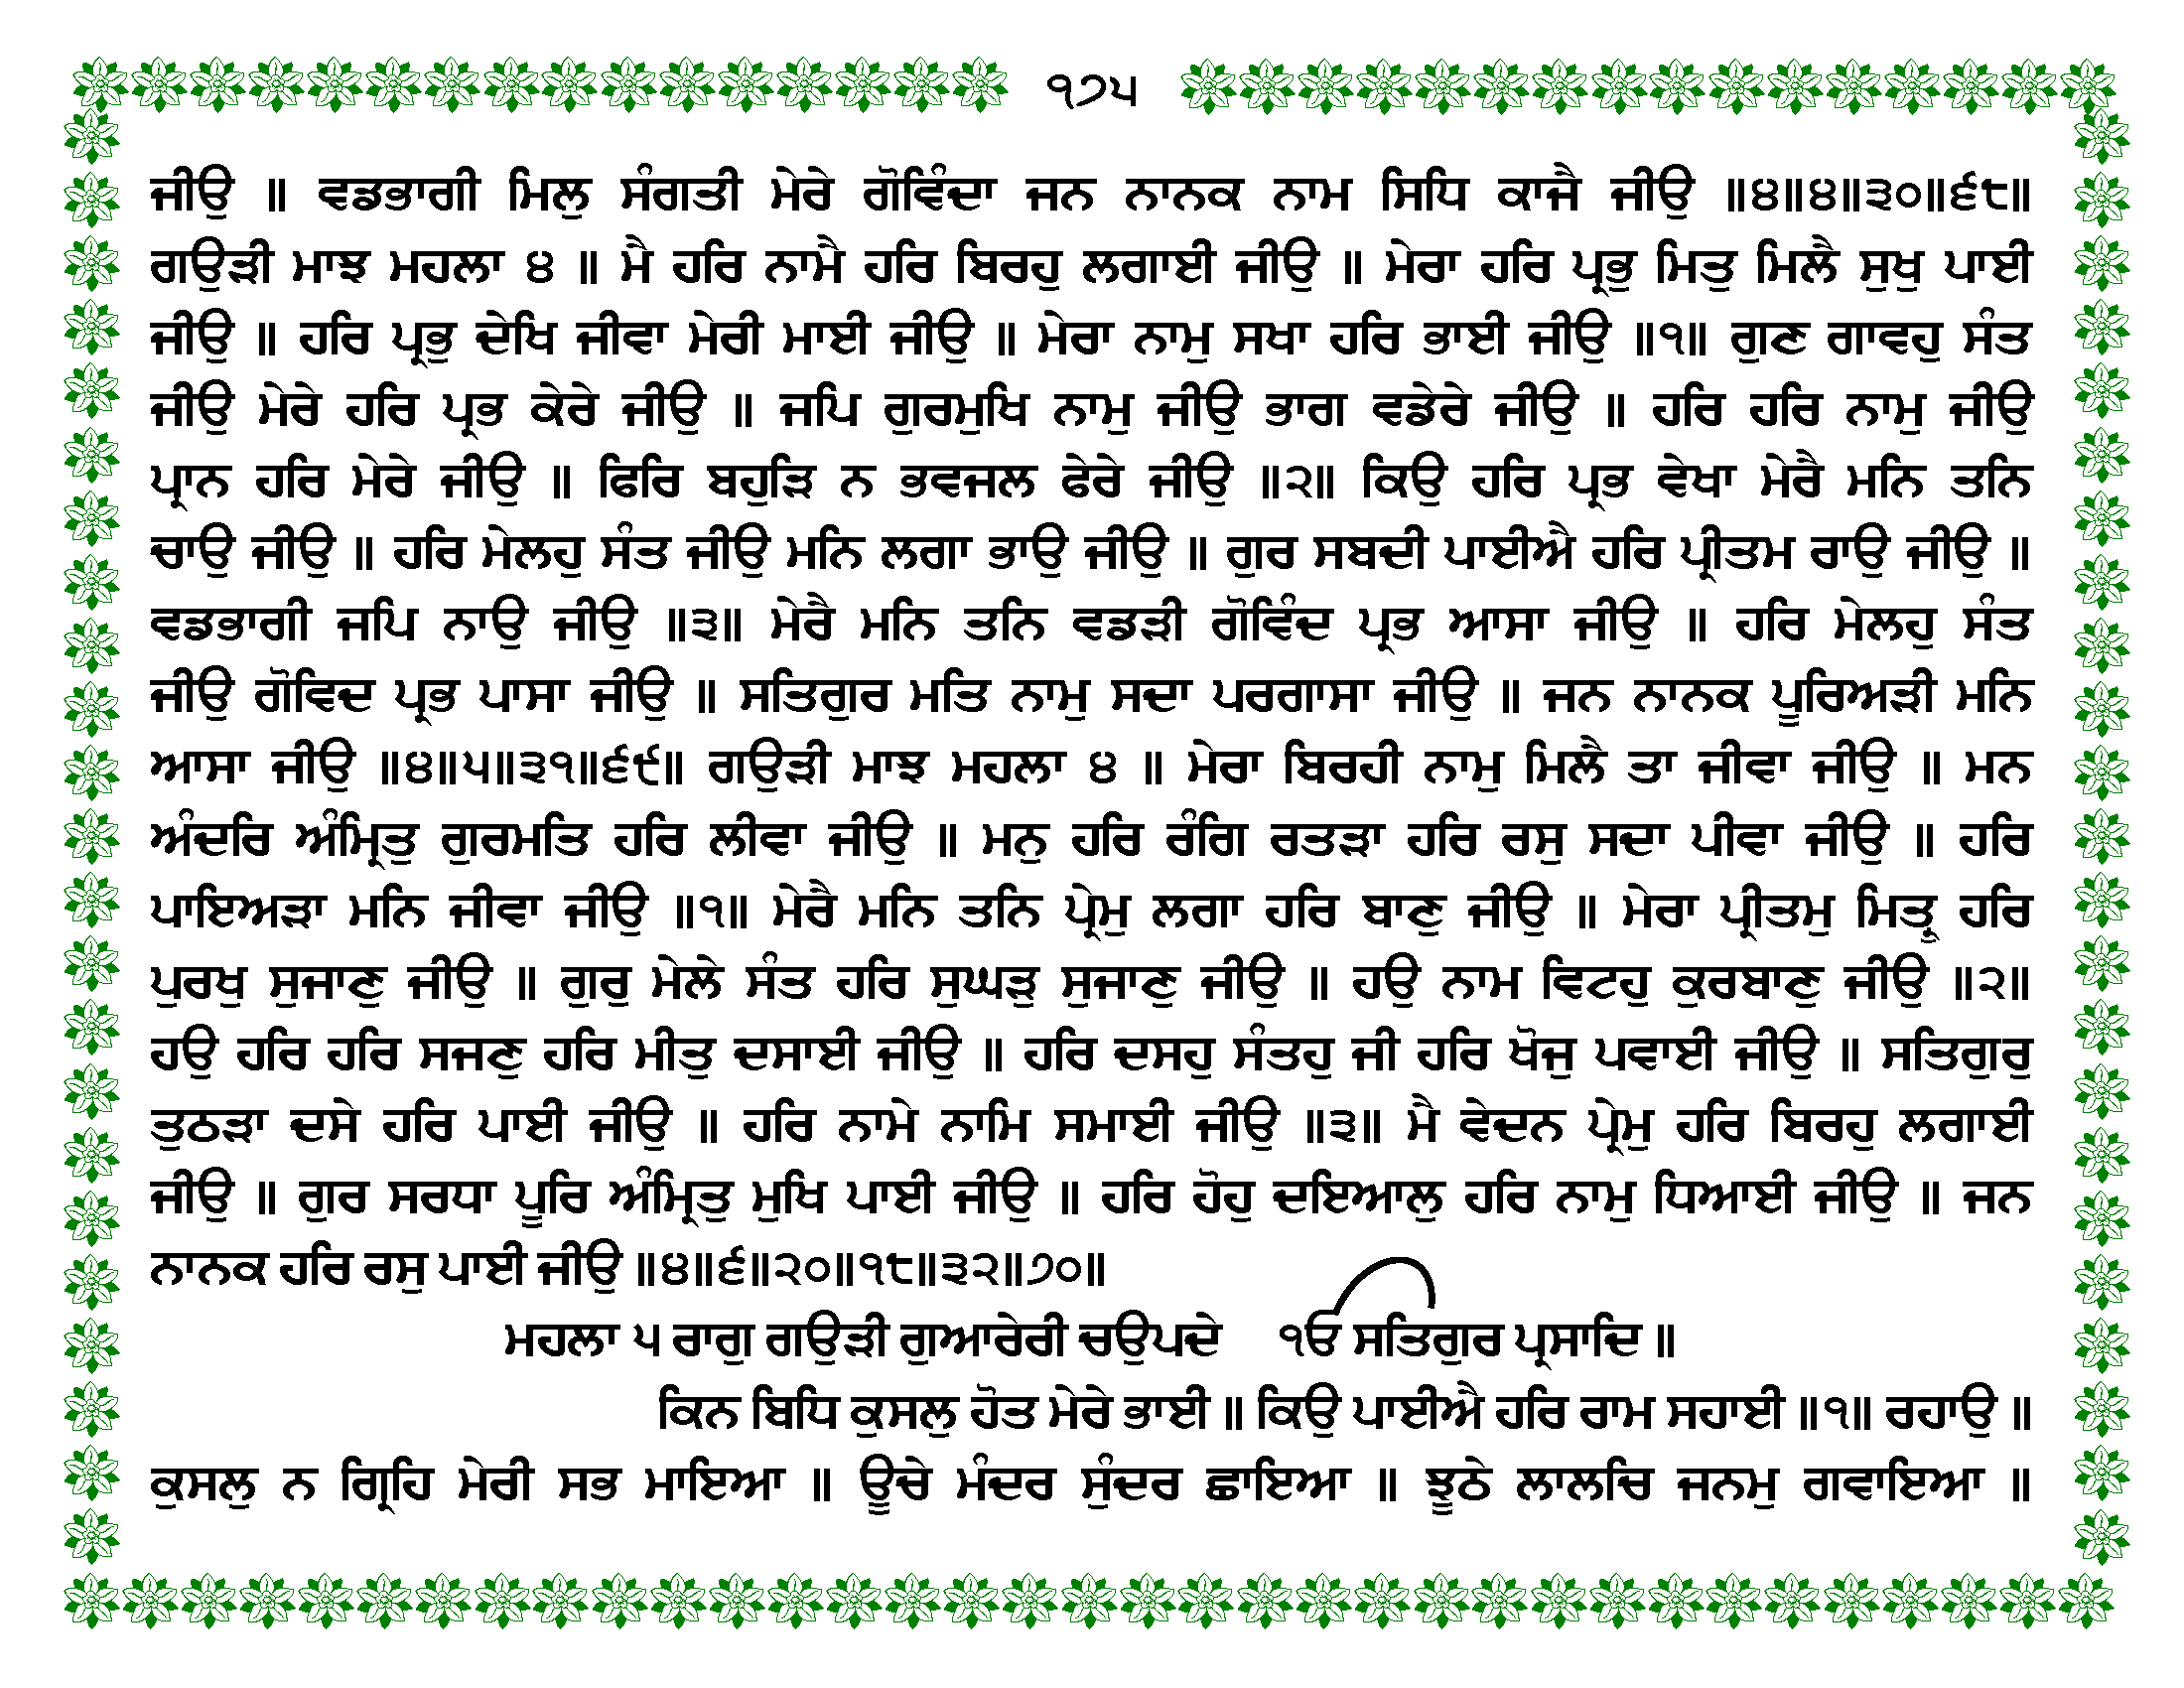 ੧੭੫
ਜੀਉ ॥ ਵਡਭਾਗੀ ਮਿਲੁ ਸੰਗਤੀ ਮੇਰੇ ਗੋਵਿੰਦਾ ਜਨ ਨਾਨਕ ਨਾਮ ਸਿਧਿ ਕਾਜੈ ਜੀਉ ॥੪॥੪॥੩੦॥੬੮॥
ਗਉੜੀ ਮਾਝ ਮਹਲਾ ੪ ॥ ਮੈ ਹਰਿ ਨਾਮੈ ਹਰਿ ਬਿਰਹੁ ਲਗਾਈ ਜੀਉ ॥ ਮੇਰਾ ਹਰਿ ਪ੍ਰਭੁ ਮਿਤੁ ਮਿਲੈ ਸੁਖੁ ਪਾਈ
ਜੀਉ ॥ ਹਰਿ ਪ੍ਰਭੁ ਦੇਖਿ ਜੀਵਾ ਮੇਰੀ ਮਾਈ ਜੀਉ ॥ ਮੇਰਾ ਨਾਮੁ ਸਖਾ ਹਰਿ ਭਾਈ ਜੀਉ ॥੧॥ ਗੁਣ ਗਾਵਹੁ ਸੰਤ
ਜੀਉ ਮੇਰੇ ਹਰਿ ਪ੍ਰਭ ਕੇਰੇ ਜੀਉ ॥ ਜਪਿ ਗੁਰਮੁਖਿ ਨਾਮੁ ਜੀਉ ਭਾਗ ਵਡੇਰੇ ਜੀਉ ॥ ਹਰਿ ਹਰਿ ਨਾਮੁ ਜੀਉ
ਪ੍ਰਾਨ ਹਰਿ ਮੇਰੇ ਜੀਉ ॥ ਫਿਰਿ ਬਹੁੜਿ ਨ ਭਵਜਲ ਫੇਰੇ ਜੀਉ ॥੨॥ ਕਿਉ ਹਰਿ ਪ੍ਰਭ ਵੇਖਾ ਮੇਰੈ ਮਨਿ ਤਨਿ
ਚਾਉ ਜੀਉ ॥ ਹਰਿ ਮੇਲਹੁ ਸੰਤ ਜੀਉ ਮਨਿ ਲਗਾ ਭਾਉ ਜੀਉ ॥ ਗੁਰ ਸਬਦੀ ਪਾਈਐ ਹਰਿ ਪ੍ਰੀਤਮ ਰਾਉ ਜੀਉ ॥
ਵਡਭਾਗੀ ਜਪਿ ਨਾਉ ਜੀਉ ॥੩॥ ਮੇਰੈ ਮਨਿ ਤਨਿ ਵਡੜੀ ਗੋਵਿੰਦ ਪ੍ਰਭ ਆਸਾ ਜੀਉ ॥ ਹਰਿ ਮੇਲਹੁ ਸੰਤ
ਜੀਉ ਗੋਵਿਦ ਪ੍ਰਭ ਪਾਸਾ ਜੀਉ ॥ ਸਤਿਗੁਰ ਮਤਿ ਨਾਮੁ ਸਦਾ ਪਰਗਾਸਾ ਜੀਉ ॥ ਜਨ ਨਾਨਕ ਪੂਰਿਅੜੀ ਮਨਿ
ਆਸਾ ਜੀਉ ॥੪॥੫॥੩੧॥੬੯॥ ਗਉੜੀ ਮਾਝ ਮਹਲਾ ੪ ॥ ਮੇਰਾ ਬਿਰਹੀ ਨਾਮੁ ਮਿਲੈ ਤਾ ਜੀਵਾ ਜੀਉ ॥ ਮਨ
ਅੰਦਰਿ ਅੰਮ੍ਰਿਤੁ ਗੁਰਮਤਿ ਹਰਿ ਲੀਵਾ ਜੀਉ ॥ ਮਨੁ ਹਰਿ ਰੰਗਿ ਰਤੜਾ ਹਰਿ ਰਸੁ ਸਦਾ ਪੀਵਾ ਜੀਉ ॥ ਹਰਿ
ਪਾਇਅੜਾ ਮਨਿ ਜੀਵਾ ਜੀਉ ॥੧॥ ਮੇਰੈ ਮਨਿ ਤਨਿ ਪ੍ਰੇਮੁ ਲਗਾ ਹਰਿ ਬਾਣੁ ਜੀਉ ॥ ਮੇਰਾ ਪ੍ਰੀਤਮੁ ਮਿਤ੍ਰੁ ਹਰਿ
ਪੁਰਖੁ ਸੁਜਾਣੁ ਜੀਉ ॥ ਗੁਰੁ ਮੇਲੇ ਸੰਤ ਹਰਿ ਸੁਘੜੁ ਸੁਜਾਣੁ ਜੀਉ ॥ ਹਉ ਨਾਮ ਵਿਟਹੁ ਕੁਰਬਾਣੁ ਜੀਉ ॥੨॥
ਹਉ ਹਰਿ ਹਰਿ ਸਜਣੁ ਹਰਿ ਮੀਤੁ ਦਸਾਈ ਜੀਉ ॥ ਹਰਿ ਦਸਹੁ ਸੰਤਹੁ ਜੀ ਹਰਿ ਖੋਜੁ ਪਵਾਈ ਜੀਉ ॥ ਸਤਿਗੁਰੁ
ਤੁਠੜਾ ਦਸੇ ਹਰਿ ਪਾਈ ਜੀਉ ॥ ਹਰਿ ਨਾਮੇ ਨਾਮਿ ਸਮਾਈ ਜੀਉ ॥੩॥ ਮੈ ਵੇਦਨ ਪ੍ਰੇਮੁ ਹਰਿ ਬਿਰਹੁ ਲਗਾਈ
ਜੀਉ ॥ ਗੁਰ ਸਰਧਾ ਪੂਰਿ ਅੰਮ੍ਰਿਤੁ ਮੁਖਿ ਪਾਈ ਜੀਉ ॥ ਹਰਿ ਹੋਹੁ ਦਇਆਲੁ ਹਰਿ ਨਾਮੁ ਧਿਆਈ ਜੀਉ ॥ ਜਨ
ਨਾਨਕ ਹਰਿ ਰਸੁ ਪਾਈ ਜੀਉ ॥੪॥੬॥੨੦॥੧੮॥੩੨॥੭੦॥
ਮਹਲਾ ੫ ਰਾਗੁ ਗਉੜੀ ਗੁਆਰੇਰੀ ਚਉਪਦੇ ੴ ਸਤਿਗੁਰ ਪ੍ਰਸਾਦਿ ॥
ਕਿਨ ਬਿਧਿ ਕੁਸਲੁ ਹੋਤ ਮੇਰੇ ਭਾਈ ॥ ਕਿਉ ਪਾਈਐ ਹਰਿ ਰਾਮ ਸਹਾਈ ॥੧॥ ਰਹਾਉ ॥
ਕੁਸਲੁ ਨ ਗ੍ਰਿਹਿ ਮੇਰੀ ਸਭ ਮਾਇਆ ॥ ਊਚੇ ਮੰਦਰ ਸੁੰਦਰ ਛਾਇਆ ॥ ਝੂਠੇ ਲਾਲਚਿ ਜਨਮੁ ਗਵਾਇਆ ॥